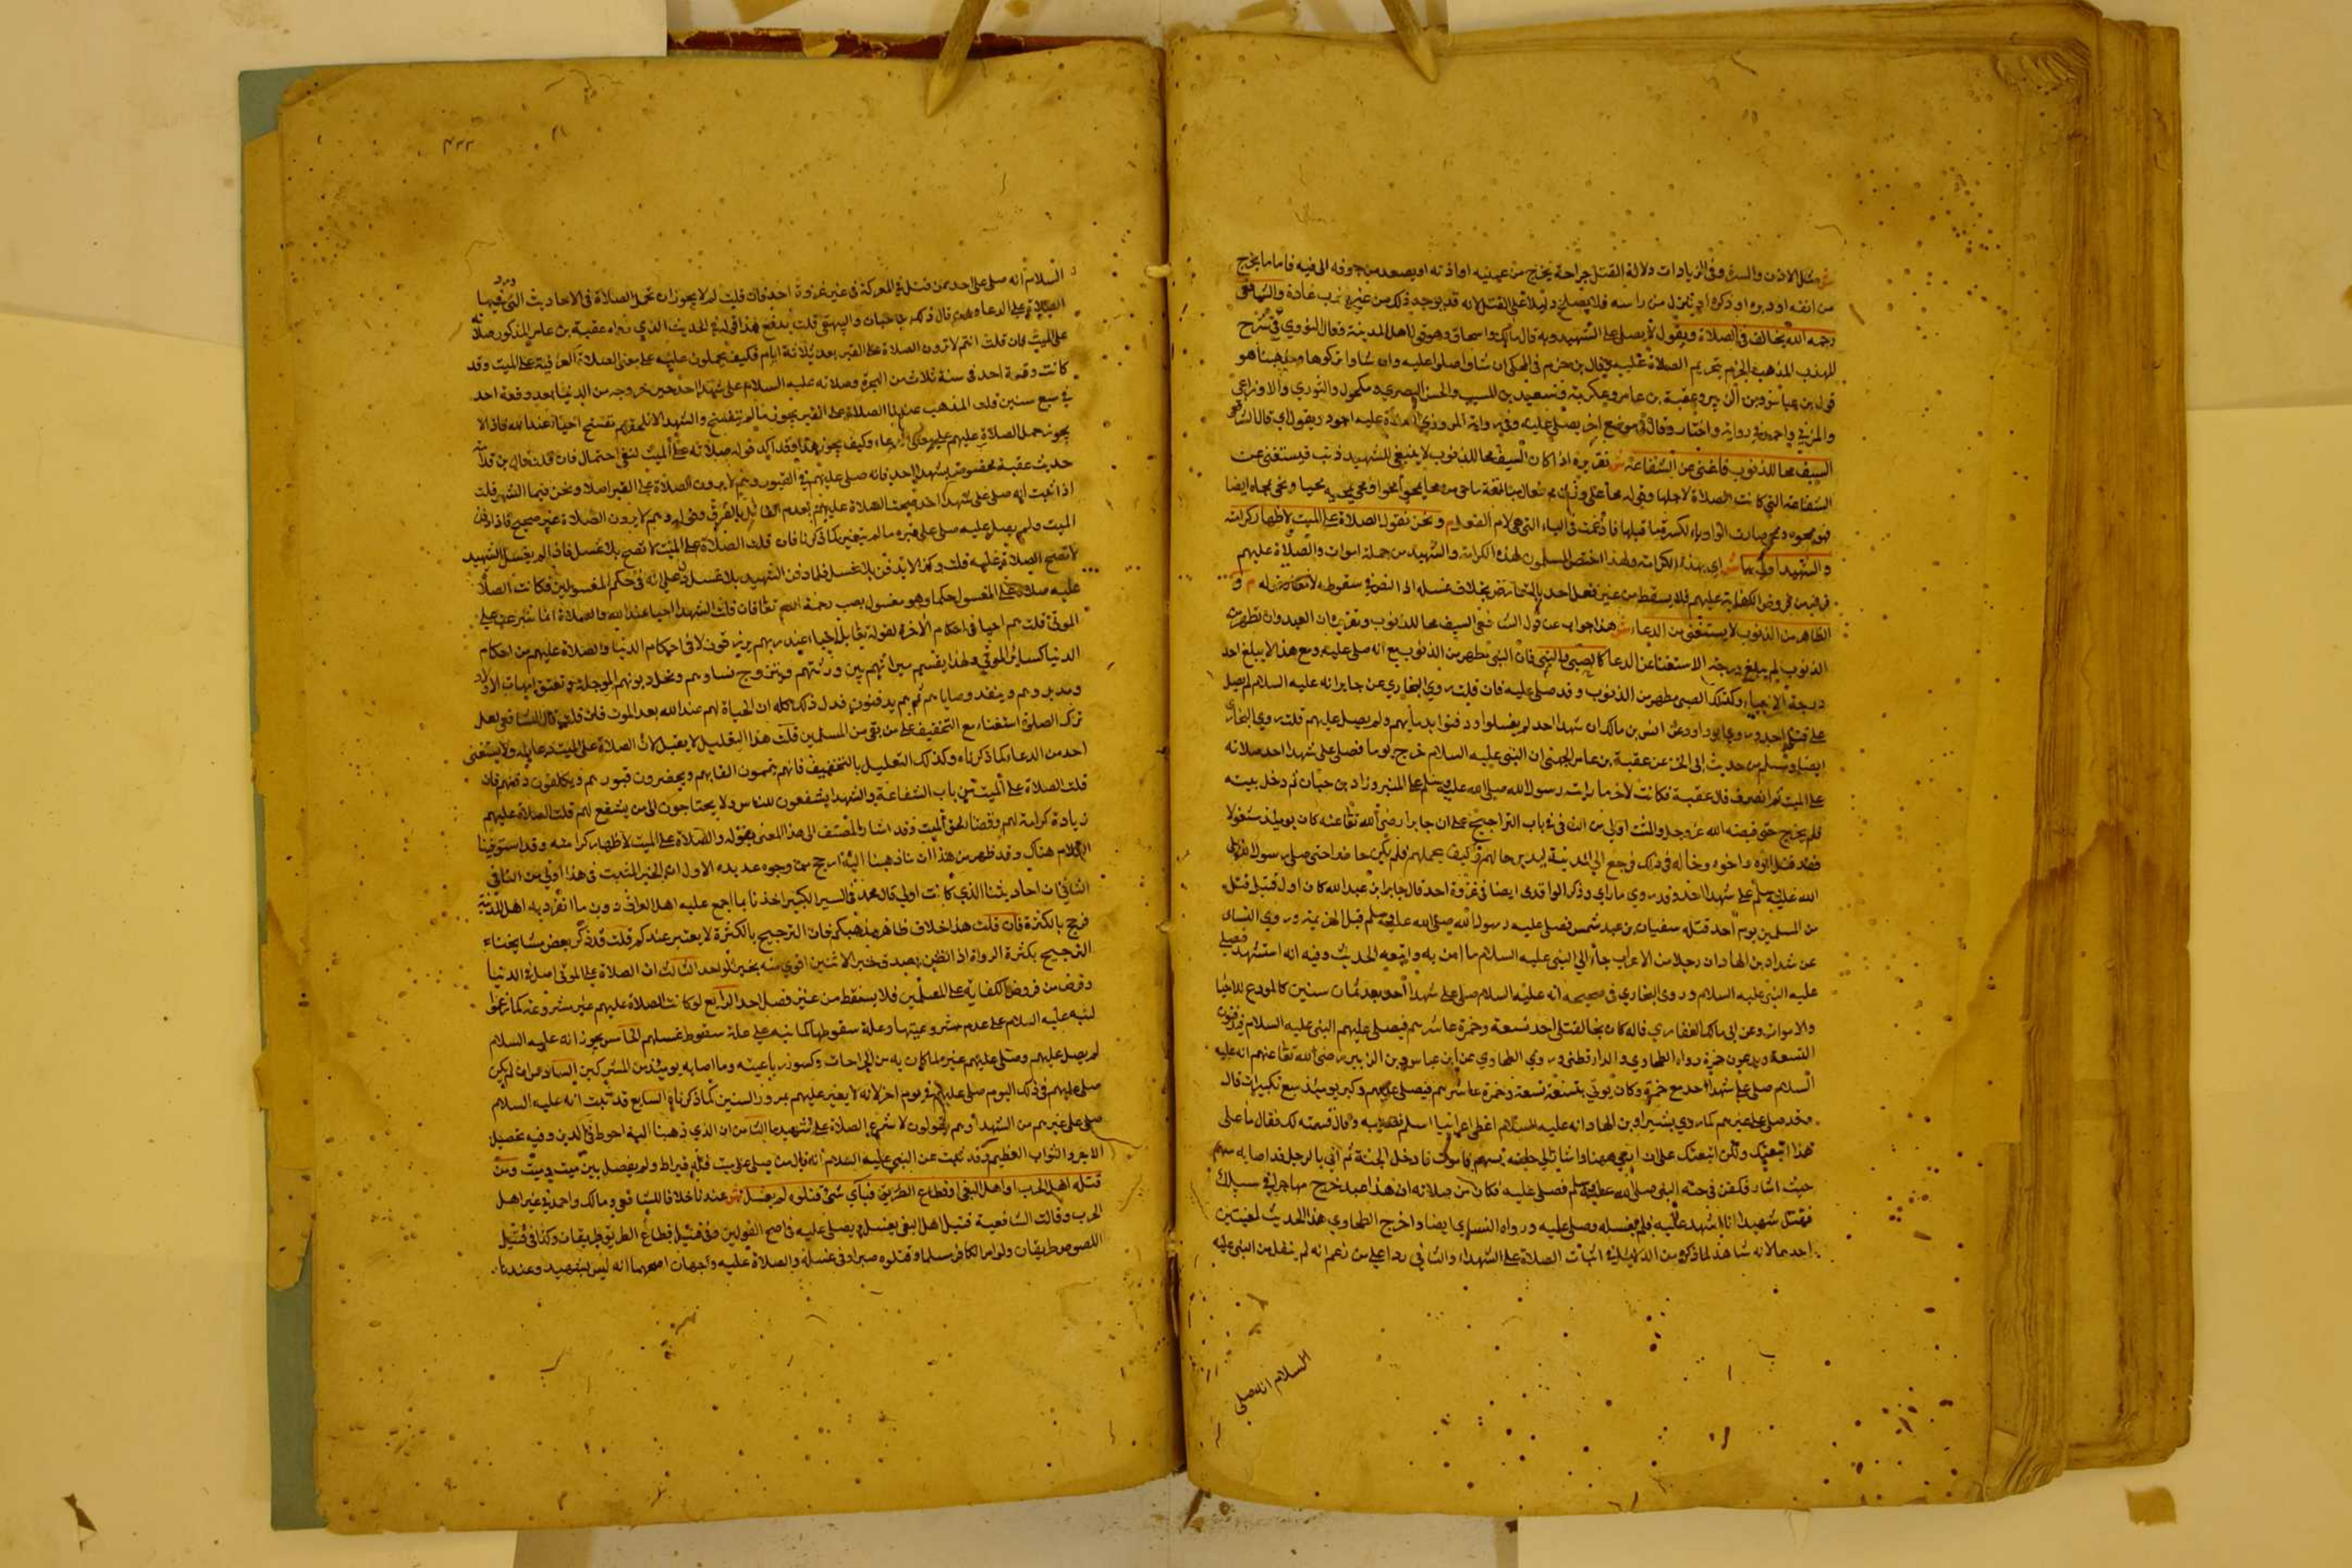 ش مثل الاذن والسرة وفي الزيادات دلالة القتل جراحة يخرج من عينيه او اذنه او يصعد من جوفه الى فيه فاما ما يخرج
من انفه او دبره او ذكره او ينزل من راسه فلا يصلح دليلا على القتل لانه قد يوجد ذلك من غير ضرب عادة والشافعي
رحمه الله يخالف في الصلاة ويقول لا يصلى على الشهيد وبه قال مالك واسحاق وهو قول اهل المدينة فقال النووي في شرح
المهذب المذهب الجزم بتحريم الصلاة عليه وقال بن حزم في المحلى ان شاوا صلوا عليه وان شاوا تركوها ومذهبنا هو
قول بن عباس وبن الزبير وعقبة بن عامر وعكرمة وسعيد بن المسيب والحسن البصري ومكحول والثوري والاوزاعي
والمزني واحمد في رواية واختار وقال في موضع اخر يصلى عليه وفي رواية المروزي الصلاة عليه اجود ويقول اي قال الشافعي
السيف محا للذنوب فاغنى عن الشفاعة ش تقريره اذا كان السيف محا للذنوب لا ينبغي للشهيد ذنب فيستغنى عن
الشفاعة التي كانت الصلاة لاجلها وقوله محا على وزن فعال مبالغة ماحي من محا يمحو محوا ومحى يمحيه محيا ومحى يمحاه ايضا
فهو ممحو وممحي صارت الواو ياء لكسرة ما قبلها فادغمت في الياء التي هي لام الفعل م ونحن نقول الصلاة على الميت لاظهار كرامته
والشهيد اولى بها ش اي بهذه الكرامة ولهذا اختص المسلمون لهذه الكرامة والشهيد من جملة اموات والصلاة عليهم
فرض من فروض الكفاية عليهم فلا يسقط من غير فعل احد بالتعارض بخلاف غسله اذ النص في سقوطه لا معارض له م و
الطاهر من الذنوب لا يستغنى من الدعاء ش هذا جواب عن قول الشافعي السيف محا للذنوب وتقريره ان العبد وان تطهر من
الذنوب لم يبلغ درجة الاستغنا عن الدعا كالصبي والنبي فان النبي مطهر من الذنوب مع انه صلي عليه ومع هذا لا يبلغ احد
درجة الانبياء وكذلك الصبي مطهر من الذنوب وقد صلي عليه فان قلت روي البخاري عن جابر انه عليه السلام لم يصل
على قتلى احد وروي ابو داود عن انس بن مالك ان شهدا احد لم يغسلوا ودفنوا بدمايهم ولم يصل عليهم قلت روي البخاري
ايضا ومسلم من حديث ابي الخير عن عقبة بن عامر الجهني ان النبي عليه السلام خرج يوما فصلى على شهدا احد صلاته
على الميت ثم انصرف قال عقبة فكانت لاخر ما رايت رسول الله صلى الله عليه وسلم على المنبر وزاد بن حبان ثم دخل بيته
فلم يخرج حتى قبضه الله عز وجل والمثبت اولى من النافي في باب التراجيح على ان جابرا رضي الله تعالى عنه كان يوميذ مشغولا
فقد قتل ابوه واخوه وخاله في ذلك فرجع الى المدينة ليدبر حالهم وكيف يحملهم فلم يكن حاضرا حتى صلى رسول الله صلى
الله عليه وسلم على شهدا احد وقد روي ما راي وذكر الواقدي ايضا في غزوة احد قال جابر ابن عبد الله كان اول قتيل قتل
من المسلمين يوم احد قتله سفيان بن عبد شمس فصلى عليه رسول الله صلى الله عليه وسلم قبل الهزيمة وروي النساي
عن شداد بن الهاد ان رجلا من الاعراب جاء الى النبي عليه السلام فامن به واتبعه الحديث وفيه انه استشهد فصلى
عليه النبي عليه السلام وروى البخاري في صحيحه انه عليه السلام صلى على شهدا احد بعد ثمان سنين كالمودع للاحيا
والاموات وعن ابي مالك الغفاري قال كان يجا لقتلى احد تسعة وحمزة عاشرهم فيصلي عليهم النبي عليه السلام فيدفنون
التسعة ويدعون حمزة رواه الطحاوي والدارقطني وروي الطحاوي عن ابن عباس وبن الزبير رضي الله تعالى عنهم انه عليه
السلام صلى على شهدا احد مع حمزة وكان يوتي بتسعة تسعة وحمزة عاشرهم فيصلي عليهم وكبر يوميذ سبع تكبيرات قال
وقد صلى على غيرهم كما روي شداد بن الهاد انه عليه السلام اعطى اعرابيا اسلم نصيبه وقال قسمته لك فقال ما على
هذا اتبعتك ولكن اتبعتك على ان ارمي ههنا واشار الى حلقه بسهم فاموت فادخل الجنة ثم اتي بالرجل قد اصابه سهم
حيث اشار فكفن في جبة النبي صلى الله عليه وسلم فصلى عليه فكان من صلاته ان هذا عبد خرج مهاجرا في سبيلك
فقتل شهيدا انا شهيد عليه فلم يغسله وصلى عليه ورواه النساي ايضا واخرج الطحاوي هذا الحديث لمعنيين
احدهما لانه شاهد لما ذكره من الدلايل في اثبات الصلاة على الشهداء والثاني ردا على من زعم انه لم ينقل من النبي عليه
السلام انه صلى
۴۳۲
السلام انه صلى على احد ممن قتل في المعركة في غير غزوة احد فان قلت لم لا يجوز ان تحمل الصلاة في الاحاديث التي ورد فيها
الصلاة على الدعا قال ذكره بن حبان والبيهقي قلت يدفع هذا قوله في الحديث الذي رواه عقبة بن عامر المذكور صلاته
على الميت فان قلت انتم لا ترون الصلاة على القبر بعد ثلاثة ايام فكيف يحملون عليه على معنى الصلاة العرفية على الميت وقد
كانت وقعة احد في سنة ثلاث من الهجرة وصلاته عليه السلام على شهدا احد حين خروجه من الدنيا بعد وقعة احد
في سبع سنين قلت المذهب عندنا الصلاة على القبر يجوز ما لم يتفسخ والشهدا لا يلحقهم تفسخ احياء عند الله فاذا لا
يجوز حمل الصلاة عليهم على الدعاء وكيف يجوز هذا وقد اكد قوله صلاته على الميت لنفي احتمال فان قلت قال بن
حديث عقبة مخصوص بشهدا احد فانه صلى عليهم في القبور وهم لا يرون الصلاة على القبر اصلا ونحن فيما اشهر قلت
اذا ثبت انه صلى على شهدا احد صحت الصلاة عليهم لعدم القايل بالفرق وقوله وهم لا يرون الصلاة غير صحيح فاذا دفن
الميت ولم يصل عليه صلى على قبره ما لم يتغير كما ذكرنا فان قلت الصلاة على الميت لا تصح بلا غسل فاذا لم يغسل الشهيد
لا تصح الصلاة عليه قلت وكذا لا يدفن بلا غسل فلما دفن الشهيد بلا غسل دل على انه في حكم المغسولين فكانت الصلاة
عليه صلاة على المغسول حكما وهو مغسول بصب رحمة الله تعالى فان قلت الشهدا احيا عند الله والصلاة انما شرعت على
الموتى قلت هم احيا في احكام الاخرة لقوله تعالى بل احياء عند ربهم يرزقون لا في احكام الدنيا والصلاة عليهم من احكام
الدنيا كساير الموتى ولهذا يقسم ميراثهم بين ورثتهم ويتزوج نساوهم وتحل ديونهم الموجلة وتعتق امهات الاولاد
ومدبروهم وينفذ وصاياهم ثم هم يدفنون فدل ذلك كله ان الحياة لهم عند الله بعد الموت فان قلت قال الشافعي لعل
ترك الصلوة استغناء مع التخفيف على من بقي من المسلمين قلت هذا التعليل لا يقبل لان الصلاة على الميت دعا له ولا يستغنى
احد من الدعا كما ذكرناه وكذلك التعليل بالتخفيف فانهم يجمعون القابهم ويحضرون قبورهم ويكلفون دفنهم فان
قلت الصلاة على الميت من باب الشفاعة والشهدا يشفعون للناس ولا يحتاجون الى من يشفع لهم قلت الصلاة عليهم
زيادة كرامة لهم وقضا لحق الميت وقد اشار المصنف الى هذا المعنى بقوله والصلاة على الميت لاظهار كرامته وقد استوفينا
الكلام هناك وقد ظهر من هذا ان ما ذهبنا اليه ارجح من وجوه عديدة الاول ان الخبر المثبت في هذا اولى من النافي
الثاني ان احاديثنا الذي كانت اولى قال محمد في السير الكبير اخذنا بما اجمع عليه اهل العراق دون ما انفرد به اهل المدينة
فرجح بالكثرة فان قلت هذا خلاف ظاهر مذهبكم فان الترجيح بالكثرة لا يعتبر عندكم قلت قد ذكر بعض مشايخنا
الترجيح بكثرة الرواة اذ الظن بصدق خبر الاثنين اقوى منه بخبر الواحد الثالث ان الصلاة على الموتى اصل في الدنيا
وفرض من فروض الكفاية على المسلمين فلا يسقط من غير فصل احد الرابع لو كانت الصلاة عليهم غير مشروعة كما زعموا
لنبه عليه السلام على عدم مشروعيتها وعلة سقوطها كما نبه على علة سقوط غسلهم الخامس يجوز انه عليه السلام
لم يصل عليهم وصلى عليهم غيره لما كان به من الجراحات وكسور رباعيته وما اصابه يوميذ من المشركين السادس ان لم يكن
صلى عليهم في ذلك اليوم صلى عليهم في يوم اخر لانه لا يغير عليهم مرور السنين كما ذكرنا السابع قد ثبت انه عليه السلام
صلى على غيرهم من الشهدا وهم يقولون لا شرع الصلاة على شهيد الثامن ان الذي ذهبنا اليه احوط في الدين وفيه تحصيل
الاجر والثواب العظيم وقد ثبت عن النبي عليه السلام انه قال من صلى على ميت فله قيراط ولم يفصل بين ميت وميت ومن
قتله اهل الحرب او اهل البغي او قطاع الطريق فباي شي قتلوه لم يغسل ش عندنا خلافا للشافعي ومالك واحمد في غير اهل
الحرب وقالت الشافعية قتيل اهل البغي يغسل ويصلى عليه في اصح القولين وفي قتيل قطاع الطريق طريقان وكذا في قتيل
اللصوص طريقان ولو اسر الكافر مسلما وقتلوه صبرا ففي غسله والصلاة عليه وجهان اصحهما انه ليس بشهيد وعندنا